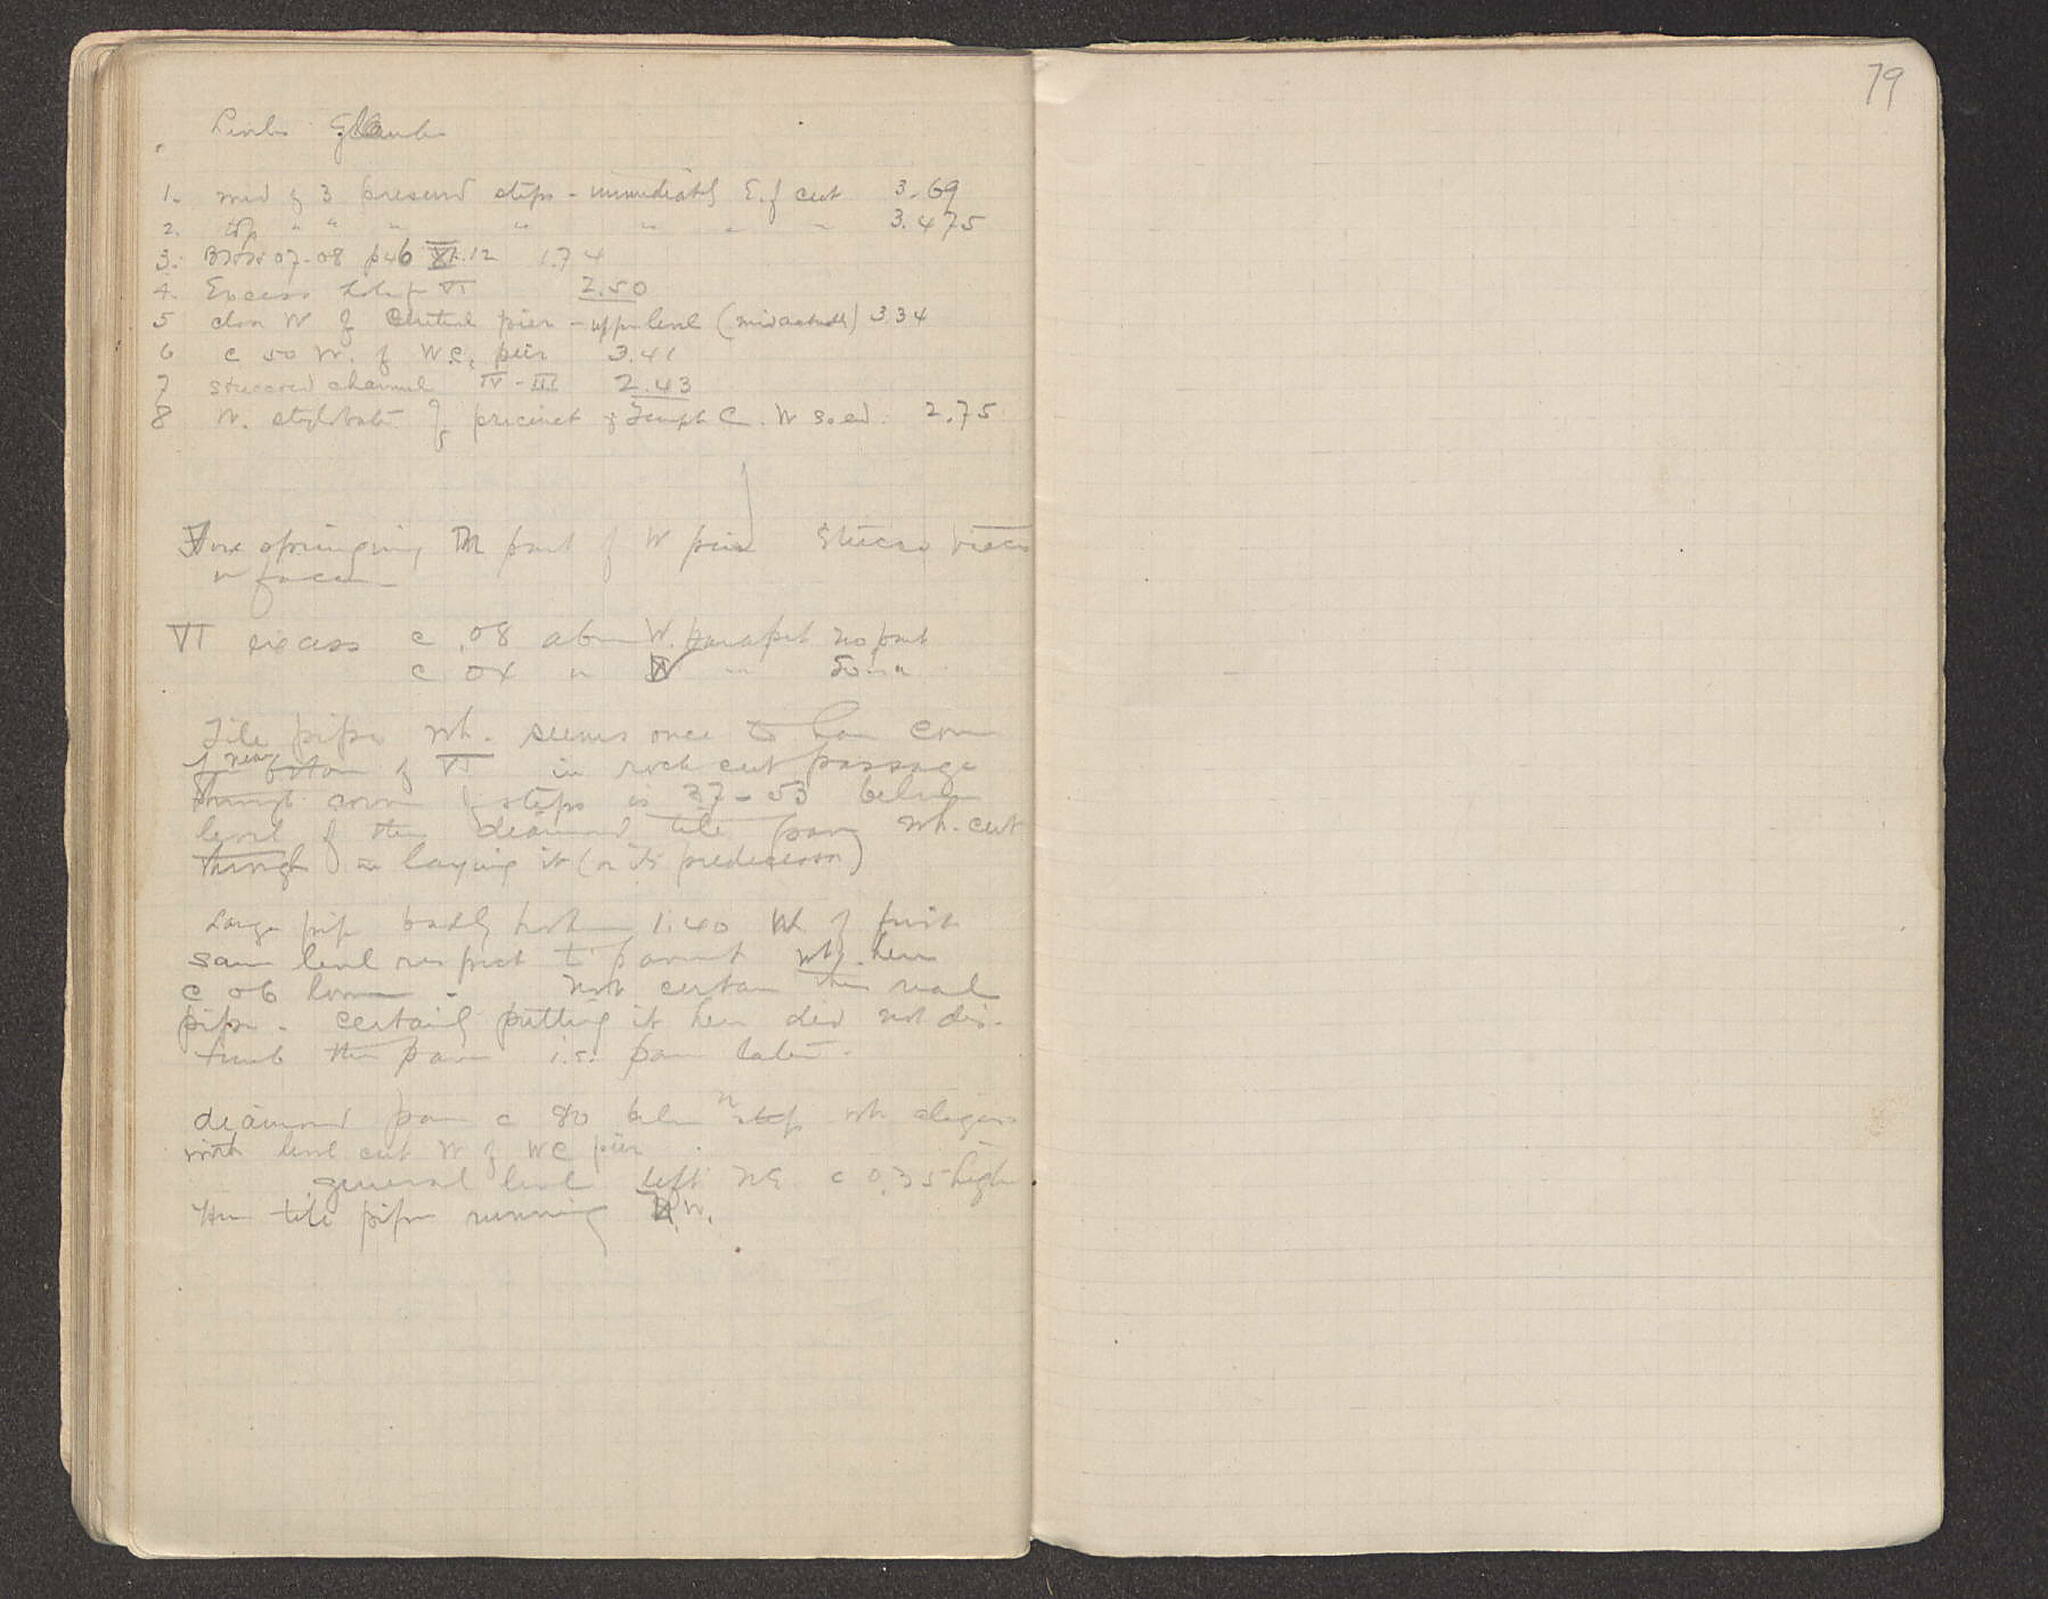 79
Levels Glauke
1. mid of 3 preserved steps - immediately E. of cut 3.69
2. top " " " " " " " 3.475
3. 07-08 p46 VI.12 1.74
4. Excess hole for VI 2.50
5 door W of Central pier - upper level (mid ) 3.34
6 c 50 W. of W.C. pier 3.41
7 stuccoed channel IV - III 2.43
8 W. stylobate of precinct of Temple C. W So end. 2.75
springing part of W pier Stucco
n face
VI excess c .08 above W. parapet No part
c 04 " N " So. "
Tile pipe wh. seems once to have come
near bottom of VI in rock cut passage
through corner of steps is 37-53 below
level of the diamond tile pave wh. cut
through in laying it (or its predecessor)
Large pipe badly broken 1.40 of first
same level respect to pavement wh. here
c 06 lower - Not certain this real
pipe - certainly putting it here did not dis-
turb the pave i.e. pave later.
diamond pave c 80 below step wh aligns
with level cut W of WC pier
general level left NE c 0.35 high
Here tile pipe running N.W.